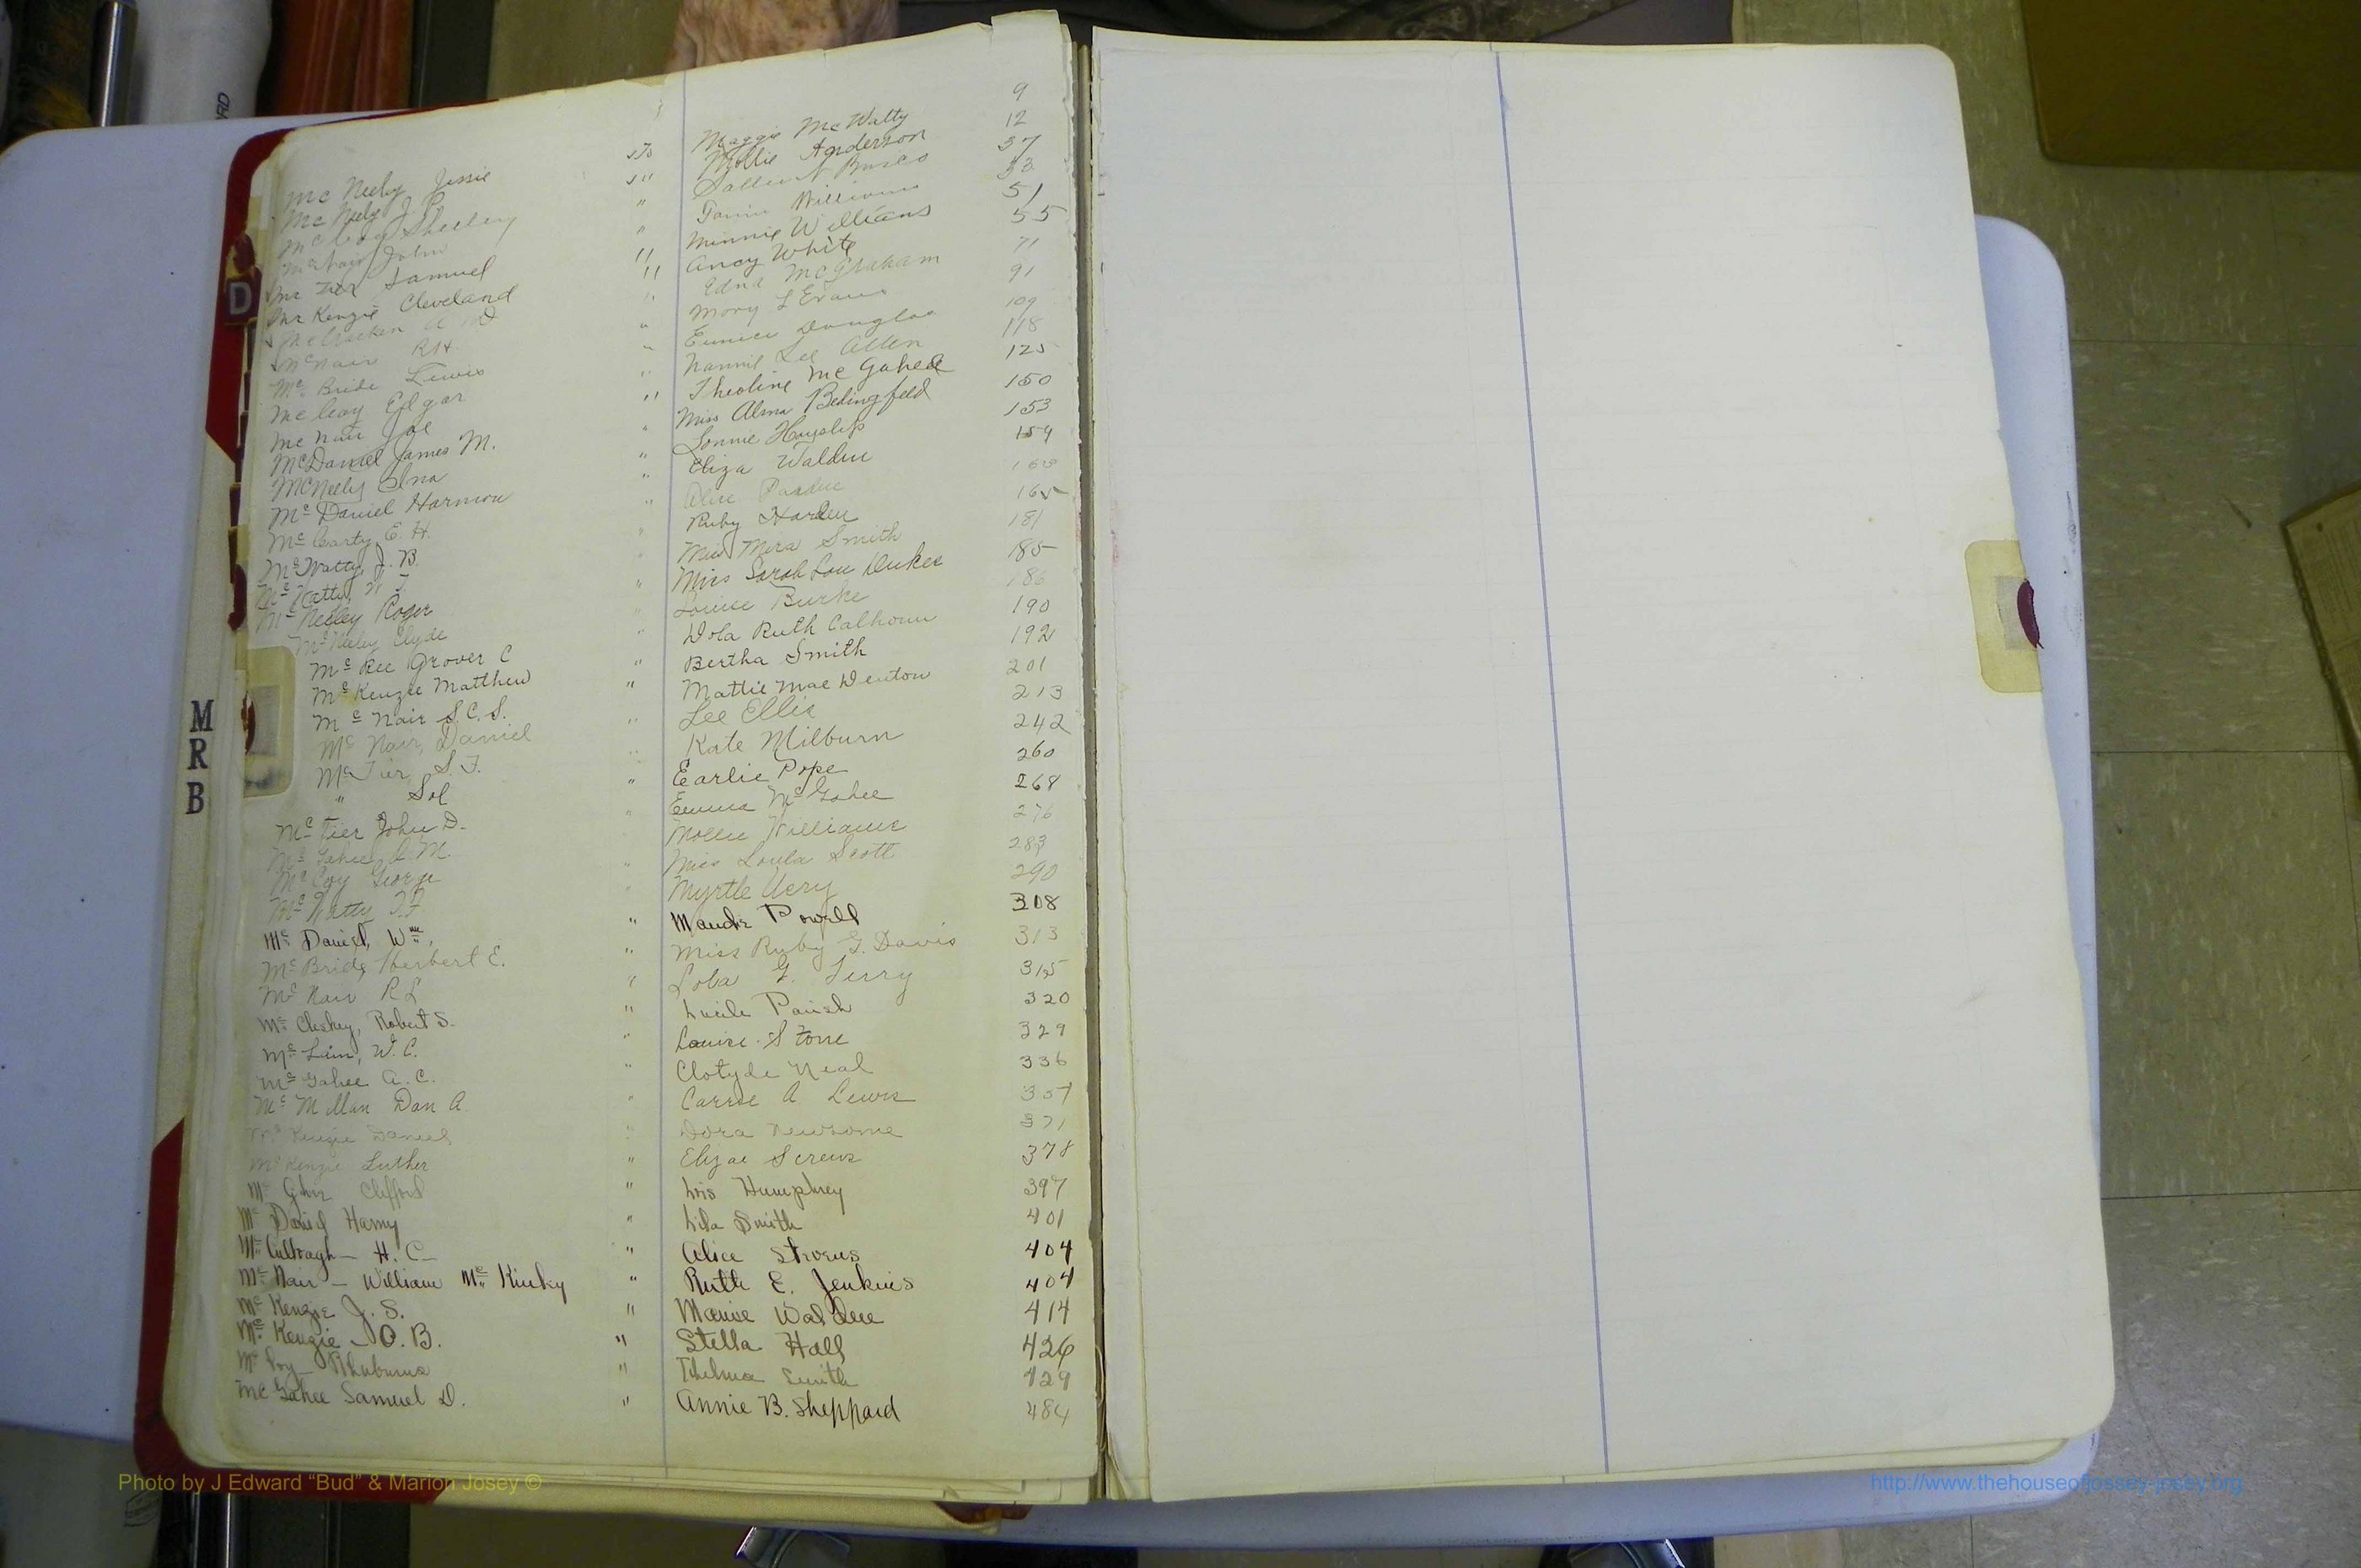 Mc Neely Jessie to Maggie McWatty 9
Mc Neely J. P. " Mollie Anderson 12
Mc Coy Shelley " Sallie 37
McNair John " Williams 53
Mc Tier Samuel " Minnie Williams 51
Mc Kenzie Cleveland " Ancy White 55
McCracken " Edna McGraham 71
McNair R.H. " Mary L Evans 91
Mc Bride Lewis " Eunice Douglas 109
McCoy Edgar " Nannie Lee Allen 118
Mc Nair Joe " Theoline Mc Gahee 125
McDaniel James M. " Miss Alma Bedingfeld 150
McNeely Ina " Lonnie Hayslip 153
Mc Daniel Harmon " Eliza Walden 159
Mc Carty E. H. " Alice
Mc Watty, J. B. " Ruby Harden 165
Mc Watty " Miss Mera Smith 181
Mc Neeley Roger " Miss Sarah Lou Dukes 185
Mc Neeley Clyde " Louise Burke 186
Mc Ree Grover C " Dola Ruth Calhoun 190
Mc Kenzie Matthew " Bertha Smith 192
Mc Nair S.C.S. " Mattie Mae Denton 201
Mc Nair, Daniel " Lee Ellis 213
Mc Tier, S. F. " Kate Milburn 242
" Sol " Earlie Pope 260
Mc Tier John D. " Emma McGahee 268
Mc Gahee M. " Mollie Williams 276
Mc Coy George " Miss Loula Scott 283
Mc Watty " Myrtle 290
Mc Daniel, Wm. " Maude Powell 308
Mc Bride Herbert E. " Miss Ruby G. Davis 313
Mc Nair R L " G. Terry 315
Mc Cleskey, Robert S. " Lucile Parish 320
Mc Lain, W. C. " Louise Stone 329
Mc Gahee A. C. " Clotyde Neal 336
Mc Millan Dan A. " Carrie A. Lewis 357
Mc Kenzie Daniel " Dora Newsome 371
Mc Kenzie Luther " Screws 378
Mc Clifford " Lois Humphrey 397
Mc Daniel " Lila Smith 401
Mc H. C. " Alice Stevens 404
Mc Nair — William Mc Kinley " Ruth E. Jenkins 404
Mc Kenzie J. S. " Walden 414
Mc Kenzie — O. B. " Stella Hall 426
Mc " Thelma Smith 429
Mc Gahee Samuel D. " Annie B. Sheppard 484
D
M
R
B
Photo by J Edward “Bud” & Marion Josey ©
http://www.thehouseofjossey-josey.org